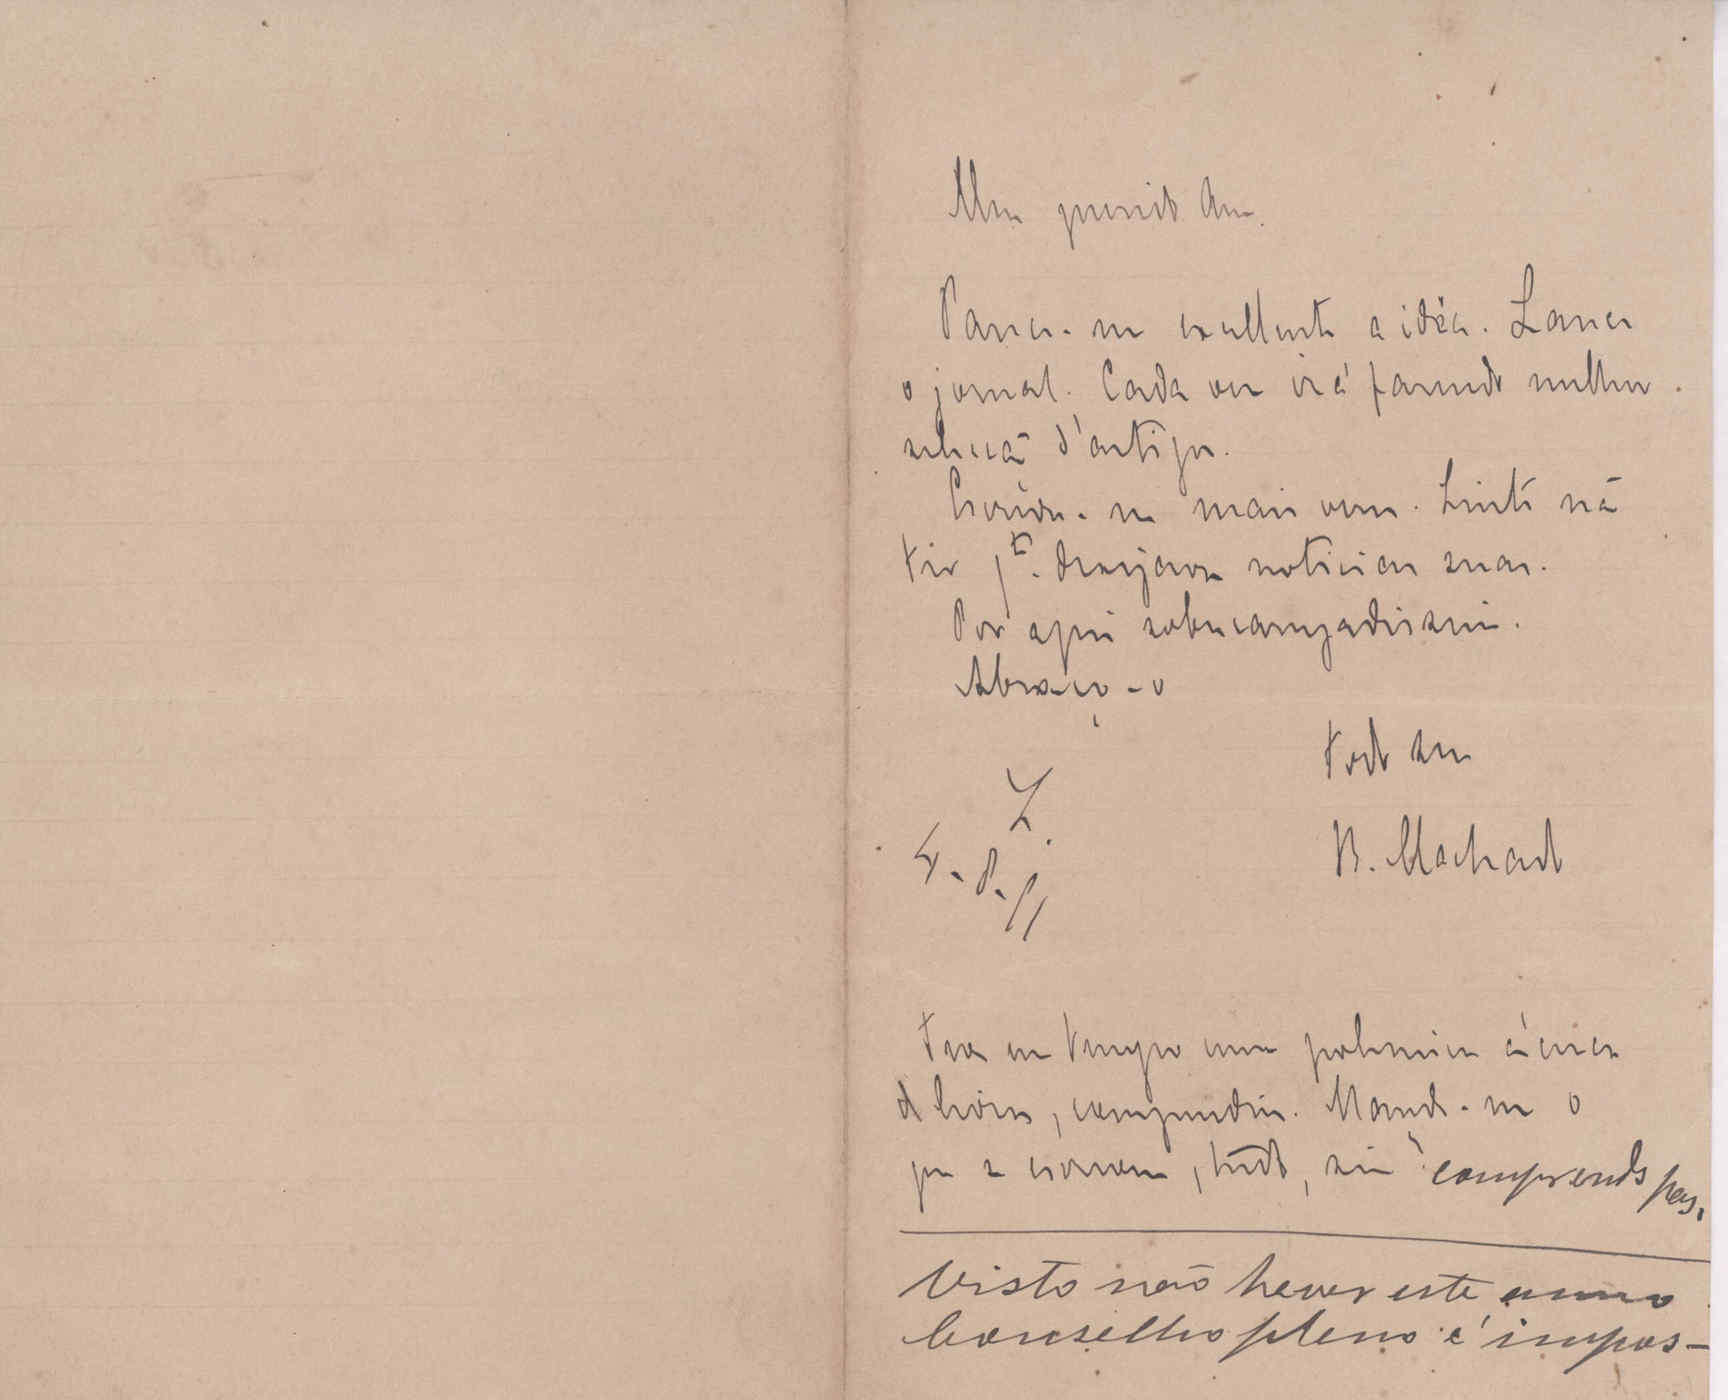 Meu querido Am.
Parece-me excellente a idéa. Lance
o jornal. Cada vez irá fazendo melhor
selecção d'artigos.
Escreva-me mais vezes. Sinto não
ter desejava noticias suas.
Por aqui sobrecarregadissimo.
Abraço-o
Todo seu
B. Machado
L.
4. P.
em tempo uma polemica ácerca
de livros, compendios. Mande-me o
que se escreveu, tudo, sim? comprends pas.
Visto não haver este anno
Conselho pleno é impos-